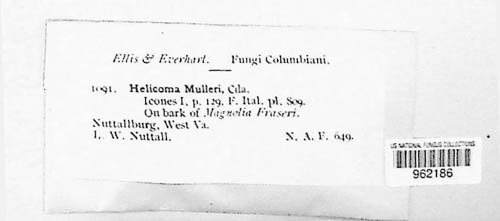 Ellis & Everhart. Fungi Columbiani.
1091. Helicoma Mulleri, Cda.
Icones I, p. 129, F. Ital. pl. 809.
On bark of Magnolia Fraseri.
Nuttallburg, West Va.
L. W. Nuttall. N. A. F. 649.
US NATIONAL FUNGUS COLLECTIONS
962186